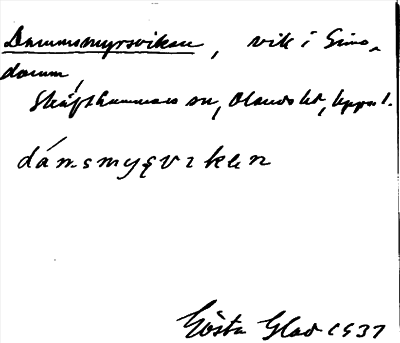 Dammsmyrsviken, vik i Simo-
darum,
Skäfthammars sn, Olands hd, Uppsal.
dámsmyṣviken
Gösta Glad 1937